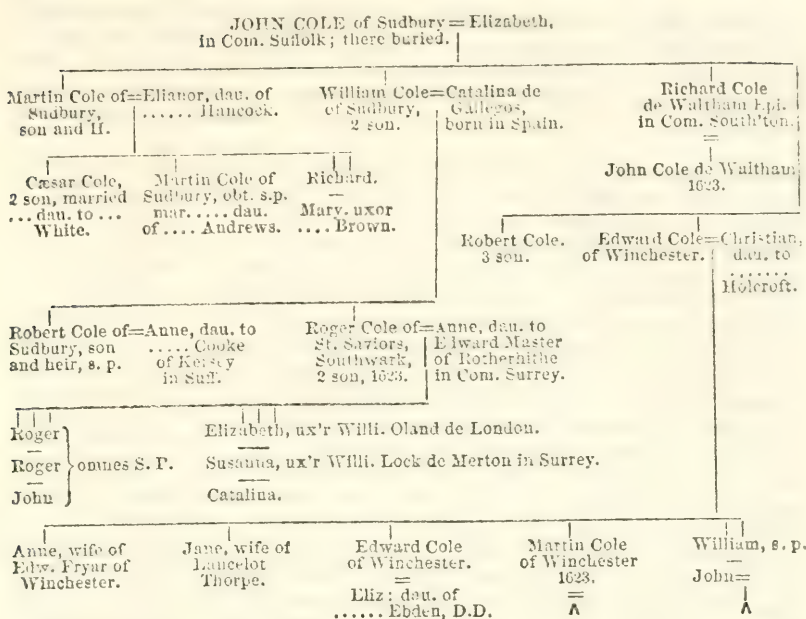 JOHN COLE of Sudbury = Elizabeth,
in Com. Suffolk; there buried.
Martin Cole of = Elianor, dau. of
Sudbury, ...... Hancock.
son and H.
William Cole = Catalina de
of Sudbury, Gallegos,
2 son. born in Spain.
Richard Cole
de Waltham Epi.
in Com. South'ton.
=
John Cole de Waltham
1623.
Cæsar Cole,
2 son, married
... dau. to ...
White.
Martin Cole of
Sudbury, obt. s.p.
mar. .... dau.
of .... Andrews.
Richard.
—
Mary. uxor
.... Brown.
Robert Cole.
3 son.
Edward Cole = Christian,
of Winchester. dau. to
.......
Holcroft.
Robert Cole of = Anne, dau. to
Sudbury, son ..... Cooke
and heir, s. p. of Kersey
in Suff.
Roger Cole of = Anne, dau. to
St. Saviors, Edward Master
Southwark, of Rotherhithe
2 son, 1623. in Com. Surrey.
Roger
—
Roger } omnes S. P.
—
John
Elizabeth, ux'r Willi. Oland de London.
Susanna, ux'r Willi. Lock de Merton in Surrey.
Catalina.
Anne, wife of
Edw. Fryar of
Winchester.
Jane, wife of
Lancelot
Thorpe.
Edward Cole
of Winchester.
=
Eliz: dau. of
...... Ebden, D.D.
Martin Cole
of Winchester
1623.
=
∧
William, s. p.
—
John =
∧